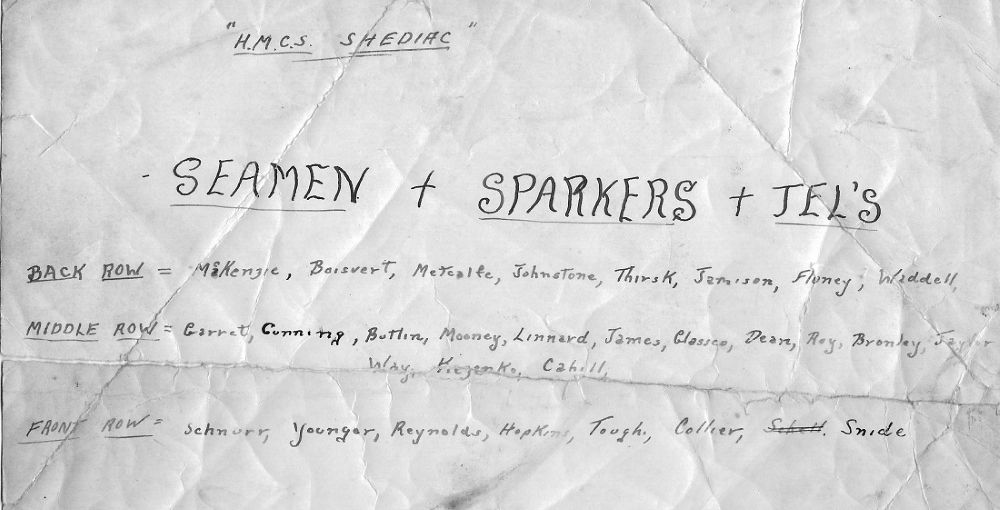 "H.M.C.S. SHEDIAC"
- SEAMEN + SPARKERS + TEL'S
BACK ROW = McKenzie, Boisvert, Metcalfe, Johnstone, Thirsk, Jamison, Fluney, Waddell,
MIDDLE ROW = Garret, Cunning, Butlin, Mooney, Linnard, James, Glassco, Dean, Roy, Bromley, Taylor
Way, Cahill,
FRONT ROW = Schnurr, Younger, Reynolds, Hopkins, Tough, Collier, Snide